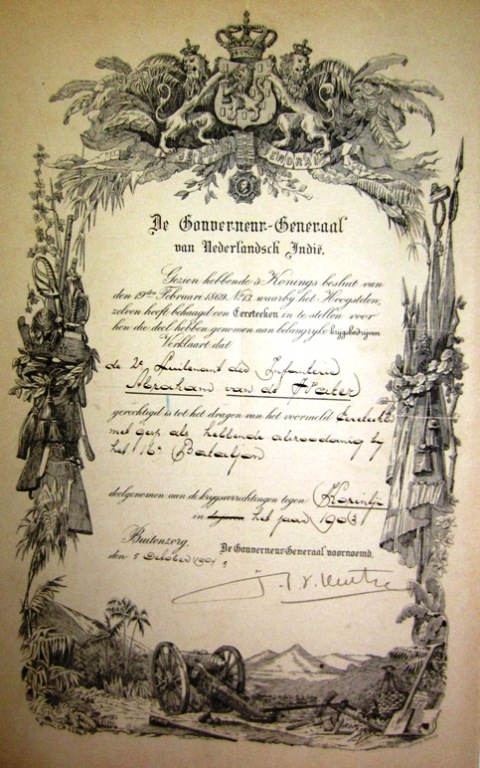 De Gouverneur-Generaal
van Nederlandsch Indië.
Gezien hebbende 's Konings besluit van
den 19den Februari 1869 No 13 waarby het Hoogstden-
zelven heeft behaagd een Eereteeken in te stellen voor
hen die deel hebben genomen aan belangryke krygsbedryven
Verklaart dat
de 2e Luitenant der Infanterie
Abraham van de Water
gerechtigd is tot het dragen van het voormeld Eereteeken
met gesp als hebbende als zoodanig by
het 16e Bataljon
deelgenomen aan de krygsverrichtingen tegen Korintji
in het jaar 1903
Buitenzorg,
den 5 October 1904
De Gouverneur-Generaal voornoemd,